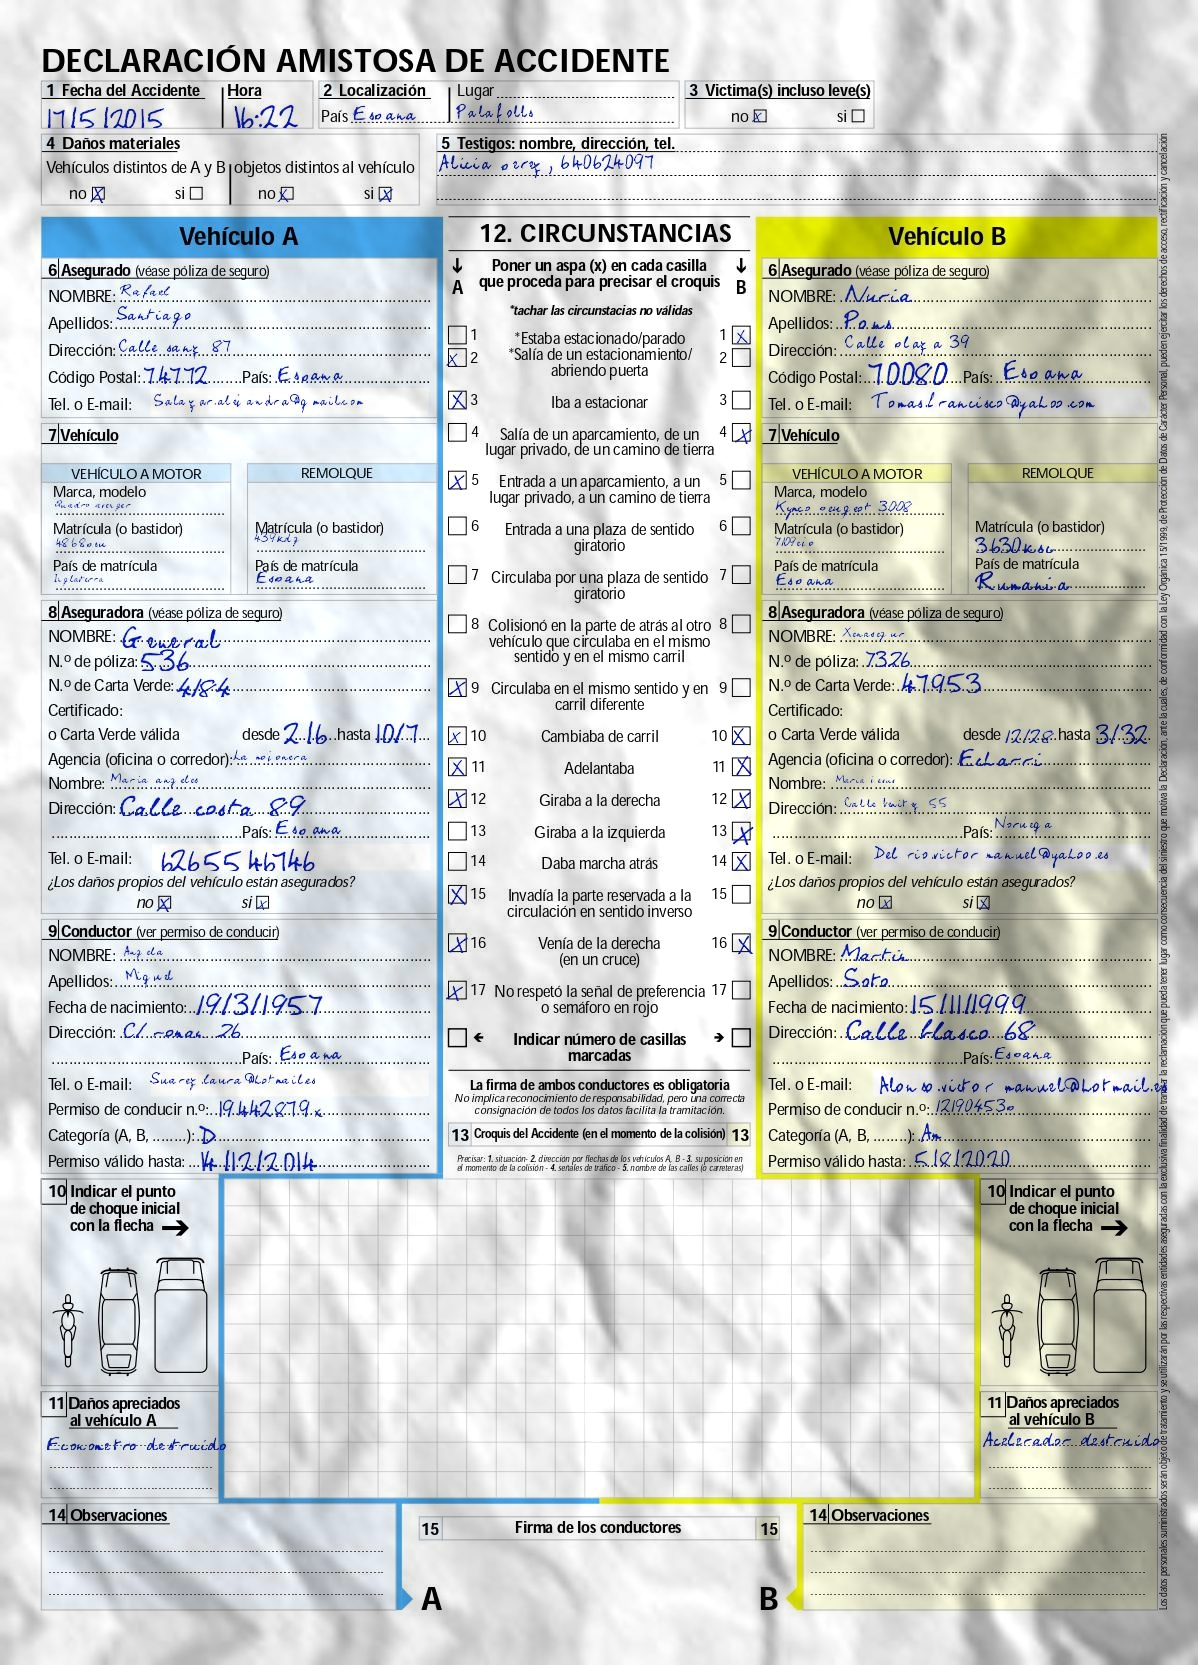 DECLARACIÓN AMISTOSA DE ACCIDENTE
1 Fecha del Accidente Hora
17/5/2015 16:22
2 Localización Lugar
País Espana Palafolls
3 Victima(s) incluso leve(s)
no X si
4 Daños materiales
Vehículos distintos de A y B objetos distintos al vehículo
no X si no X si X
5 Testigos: nombre, dirección, tel.
Alicia 640624097
Vehículo A
6 Asegurado (véase póliza de seguro)
NOMBRE: Rafael
Apellidos: Santiago
Dirección: Calle sanz 87
Código Postal: 74772 País: Espana
Tel. o E-mail: Salazar.alejandra@gmail.com
7 Vehículo
VEHÍCULO A MOTOR REMOLQUE
Marca, modelo
Matrícula (o bastidor) Matrícula (o bastidor)
País de matrícula País de matrícula
Inglaterra Espana
8 Aseguradora (véase póliza de seguro)
NOMBRE: General
N.º de póliza: 536
N.º de Carta Verde: 4184
Certificado:
o Carta Verde válida desde 2/6 hasta 10/7
Agencia (oficina o corredor): La mojonera
Nombre: Maria angeles
Dirección: Calle costa 89
País: Espana
Tel. o E-mail: 6265546746
¿Los daños propios del vehículo están asegurados?
no X si X
9 Conductor (ver permiso de conducir)
NOMBRE: Angela
Apellidos: Miguel
Fecha de nacimiento: 19/3/1957
Dirección: C/ roman 26
País: Espana
Tel. o E-mail: Suarez.laura@hotmail.es
Permiso de conducir n.º: 19442879x
Categoría (A, B, ........): D
Permiso válido hasta: 14/12/2014
12. CIRCUNSTANCIAS
A Poner un aspa (x) en cada casilla B
que proceda para precisar el croquis
*tachar las circunstacias no válidas
1 *Estaba estacionado/parado 1 X
X 2 *Salía de un estacionamiento/ 2
abriendo puerta
X 3 Iba a estacionar 3
4 Salía de un aparcamiento, de un 4 X
lugar privado, de un camino de tierra
X 5 Entrada a un aparcamiento, a un 5
lugar privado, a un camino de tierra
6 Entrada a una plaza de sentido 6
giratorio
7 Circulaba por una plaza de sentido 7
giratorio
8 Colisionó en la parte de atrás al otro 8
vehículo que circulaba en el mismo
sentido y en el mismo carril
X 9 Circulaba en el mismo sentido y en 9
carril diferente
X 10 Cambiaba de carril 10 X
X 11 Adelantaba 11 X
X 12 Giraba a la derecha 12 X
13 Giraba a la izquierda 13 X
14 Daba marcha atrás 14 X
X 15 Invadía la parte reservada a la 15
circulación en sentido inverso
X 16 Venía de la derecha 16 X
(en un cruce)
X 17 No respetó la señal de preferencia 17
o semáforo en rojo
Indicar número de casillas
marcadas
La firma de ambos conductores es obligatoria
No implica reconocimiento de responsabilidad, pero una correcta
consignación de todos los datos facilita la tramitación.
13 Croquis del Accidente (en el momento de la colisión) 13
Precisar: 1. situación- 2. dirección por flechas de los vehículos A, B - 3. su posición en
el momento de la colisión - 4. señales de tráfico - 5. nombre de las calles (o carreteras)
Vehículo B
6 Asegurado (véase póliza de seguro)
NOMBRE: Nuria
Apellidos: Pons
Dirección: Calle olaz a 39
Código Postal: 70080 País: Espana
Tel. o E-mail: Tomas.francisco@yahoo.com
7 Vehículo
VEHÍCULO A MOTOR REMOLQUE
Marca, modelo
Kymco peugeot 3008
Matrícula (o bastidor) Matrícula (o bastidor)
3630ksc
País de matrícula País de matrícula
Espana Rumania
8 Aseguradora (véase póliza de seguro)
NOMBRE: Xenasegur
N.º de póliza: 7326
N.º de Carta Verde: 47953
Certificado:
o Carta Verde válida desde 12/28 hasta 3/32
Agencia (oficina o corredor): Echarri
Nombre: Maria jesus
Dirección: Calle 55
País: Noruega
Tel. o E-mail: Del rio.victor manuel@yahoo.es
¿Los daños propios del vehículo están asegurados?
no X si X
9 Conductor (ver permiso de conducir)
NOMBRE: Martin
Apellidos: Soto
Fecha de nacimiento: 15/11/1999
Dirección: Calle blasco 68
País: Espana
Tel. o E-mail: Alonso.victor manuel@hotmail.es
Permiso de conducir n.º:
Categoría (A, B, .......): Am
Permiso válido hasta: 5/8/2020
10 Indicar el punto
de choque inicial
con la flecha
11 Daños apreciados
al vehículo A
Econometro destruido
10 Indicar el punto
de choque inicial
con la flecha
11 Daños apreciados
al vehículo B
Acelerador destruido
14 Observaciones
15 Firma de los conductores 15
A B
14 Observaciones